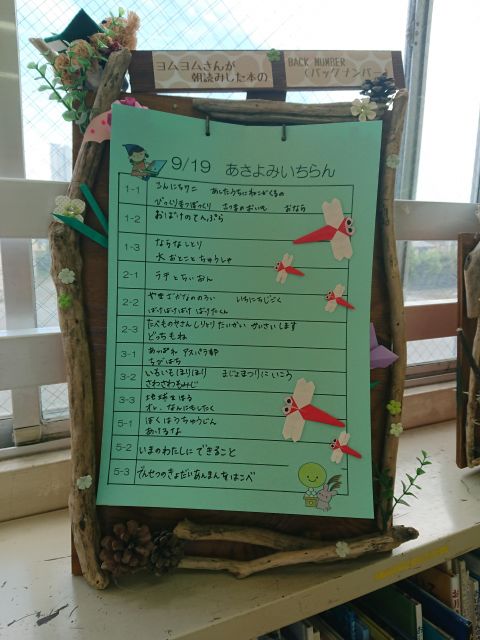 ヨムヨムさんが
朝読みした本の
BACK NUMBER
(バックナンバー)
9/19 あさよみいちらん
1-1 こんにちワニ あしたうちにねこがくるの
びっくりまつぼっくり さつまのおいも おなら
1-2 おばけのてんぷら
1-3 ならなしとり
水 おとことちゅうしゃ
2-1 ラチとらいおん
2-2 やまざかなののろい いちにちじごく
ばけばけばけばけ ばけたくん
2-3 たべものやさん しりとり たいかい かいさいします
どっちもね
3-1 あっぱれ アスパラ郎
ちびはち
3-2 いもいもほりほり まじょまつりにいこう
さわさわもみじ
3-3 地球生
オレ、なんにもしたく
5-1 ぼくはうちゅうじん
あいうえ
5-2 いまのわたしにできること
5-3 でんせつのきょだいあんまんをはこべ